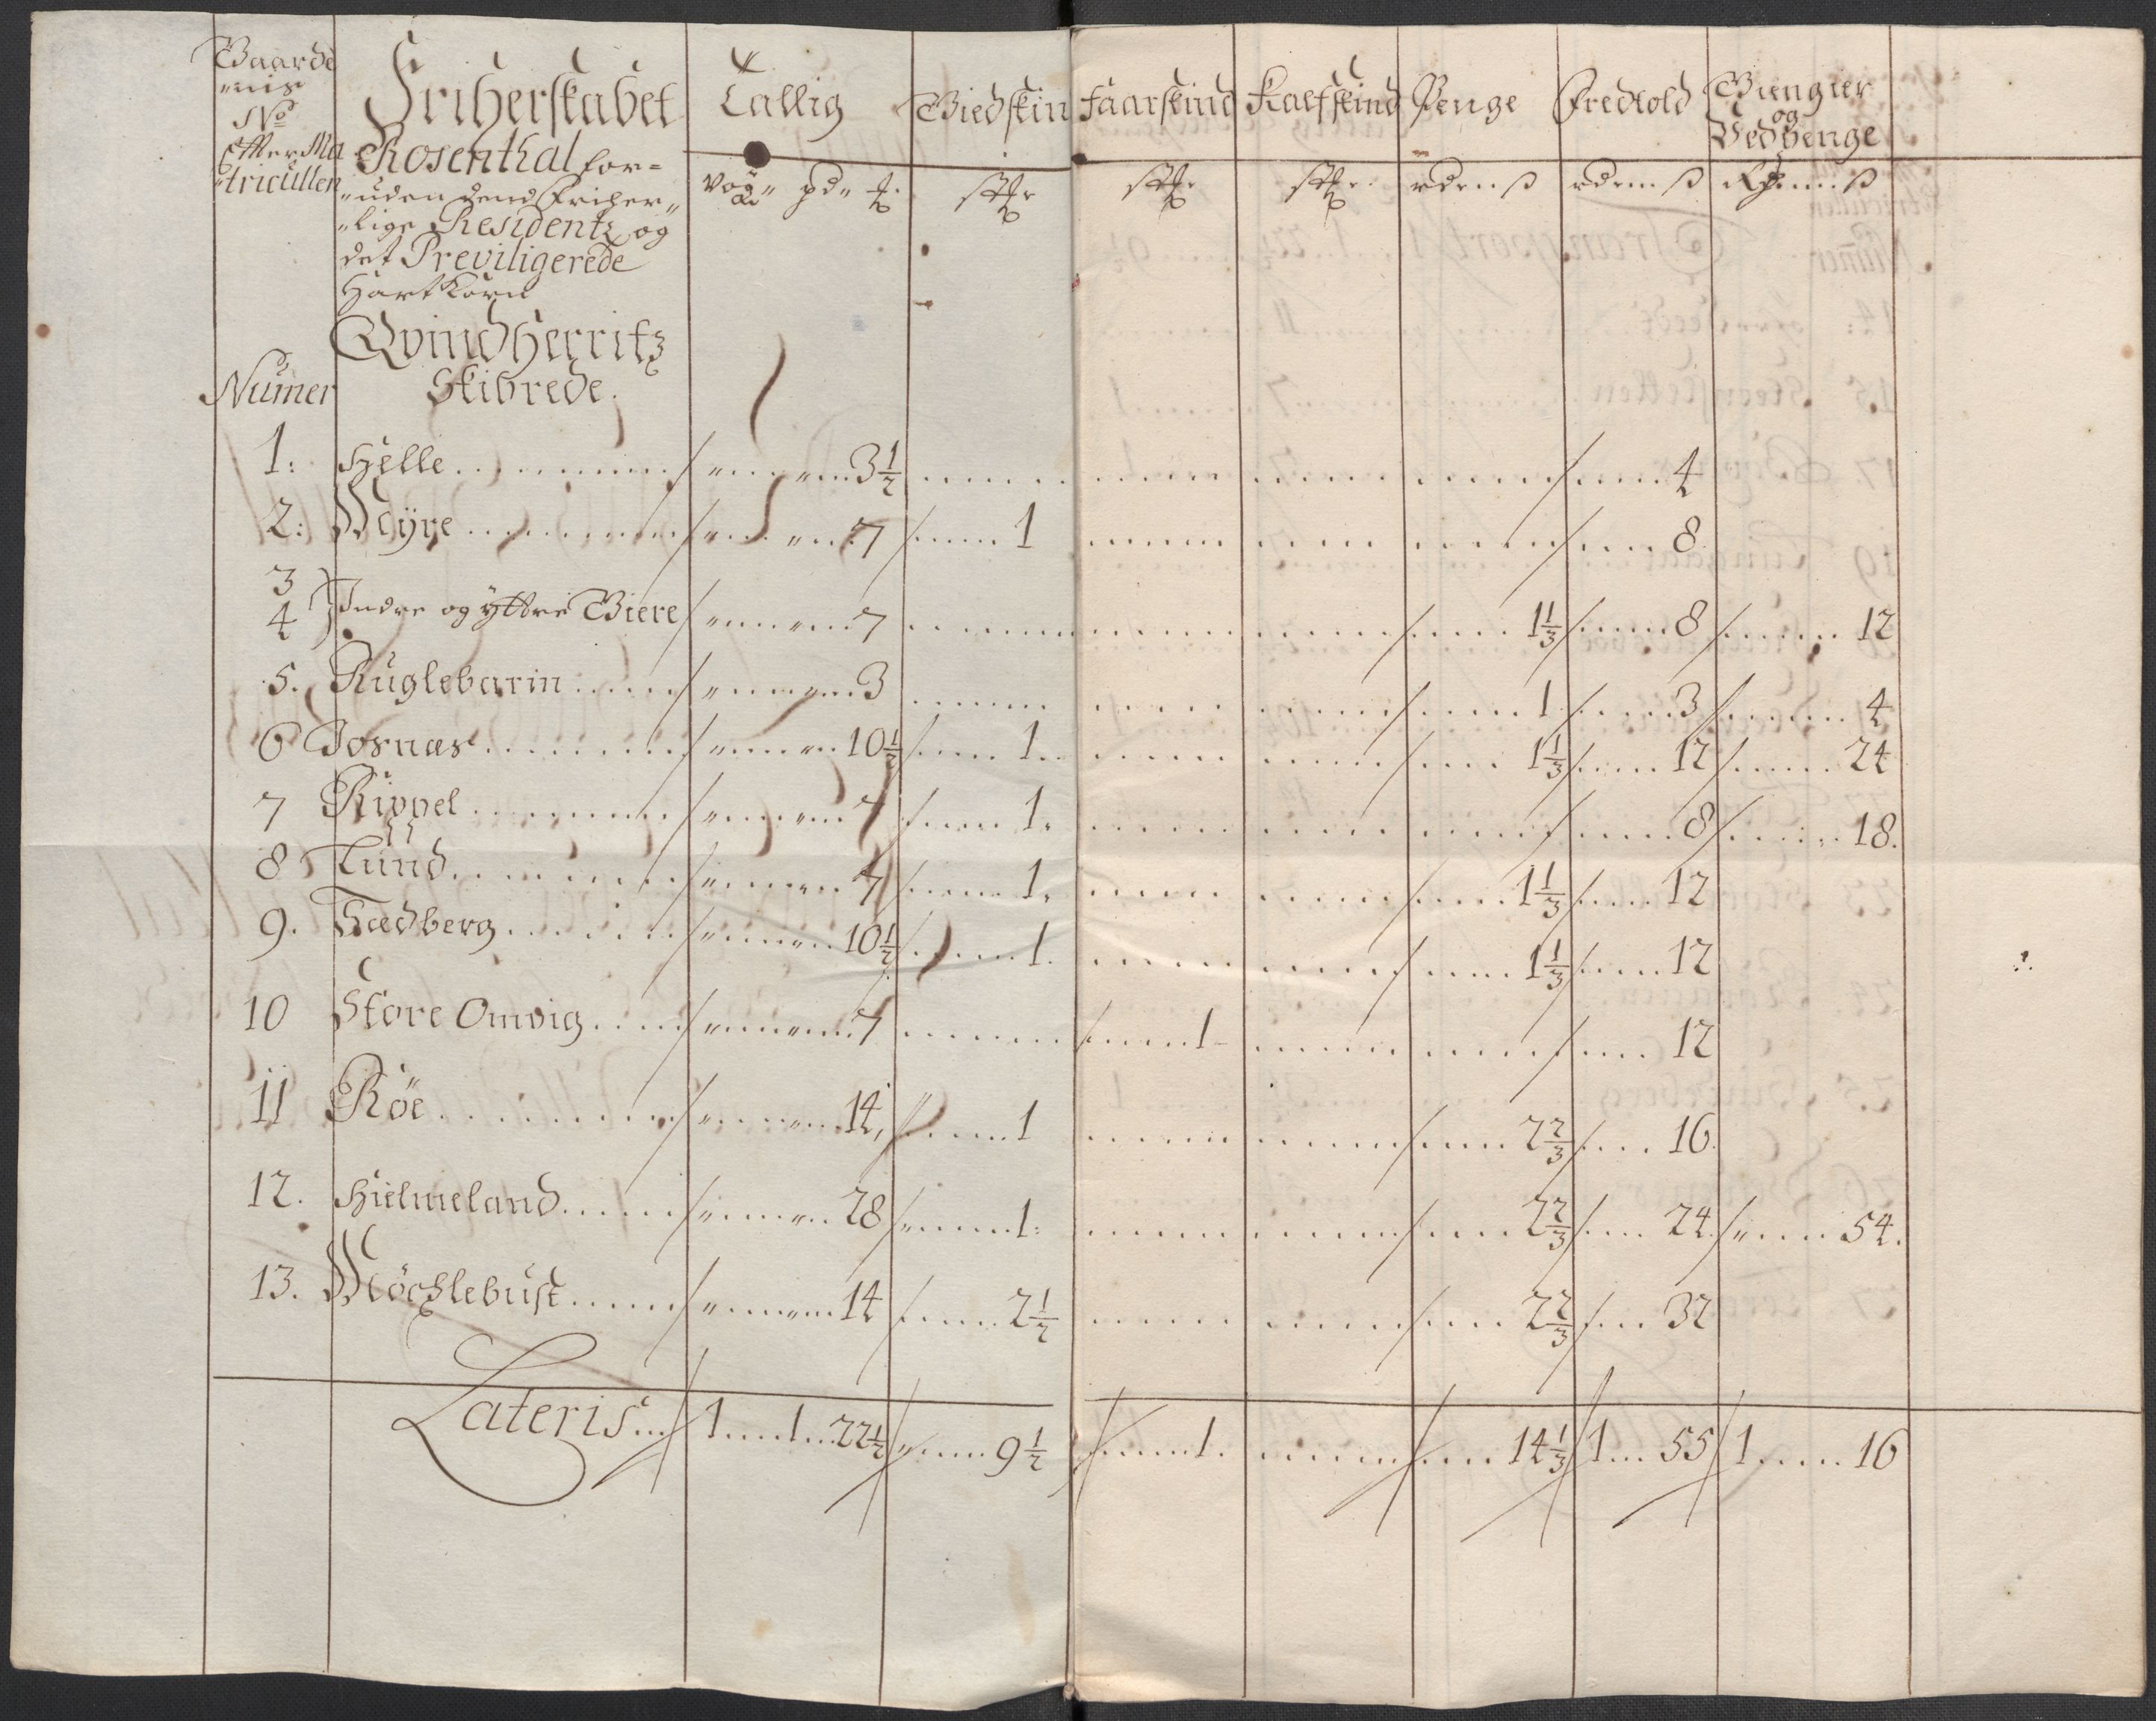 Gaarde
ernis
No
Efter Ma
tricullen
Friherskabet
Rosenthal for=
uden dend Friher
lige Residentz og
det Previligerede
Hartkorn
Tallig
Giedskin
Faarskind
Kalfskind
Penge
Fredtold
Giengier
og
Vedpenge
Qvindherritz
Numer
Skibrede.
1: Helle 3½ 4
2: Myre 7 1 8
3
4 Indre og yttre Biere 7 1⅓ 8 12
5. Kuglebarin 3 1 3 4
6 Josnæs 10½ 1 1⅓ 12 24
7 Rippel 7 1 8 18.
8 Lund 7 1 1⅓ 12
9. Sædberg 10½ 1 1⅓ 12
10 Store Omvig 7 1 12
11 Röe 14 1 2⅔ 16
12. Hielmeland 28 1 2⅔ 24 54.
13. Möchlebust 14 2½ 2⅔ 32
Lateris 1 1 22½ 9½ 1 14⅓ 1 55 1 16